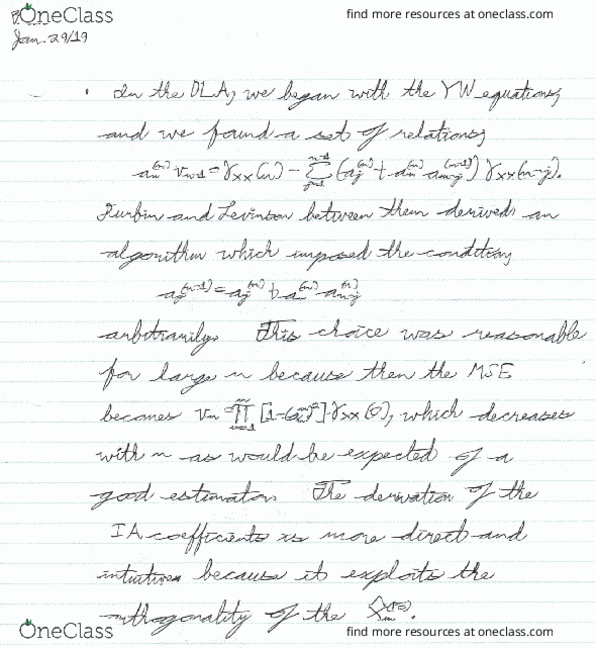 OneClass
find more resources at oneclass.com
Jan. 29/19
· In the DLA, we began with the YW equations,
and we found a set of relations,
a_n^(n) v_{n-1} = γ_XX(n) - Σ_{j=1}^{n-1} (a_j^(n) + a_n^(n) a_{n-j}^(n-1)) γ_XX(n-j).
Durbin and Levinson between them derived an
algorithm which imposed the condition,
a_j^(n-1) = a_j^(n) + a_n^(n) a_{n-j}^(n-1)
arbitrarily. This choice was reasonable
for large n because then the MSE
becomes v_n = Π [1-(a)²] γ_XX(0), which decreases
with n as would be expected of a
good estimator. The derivation of the
IA coefficients is more direct and
intuitive because it exploits the
orthogonality of the
OneClass
find more resources at oneclass.com